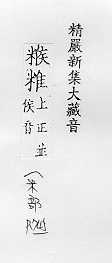 精嚴新集大藏音
糇
上正並
侯音
米部